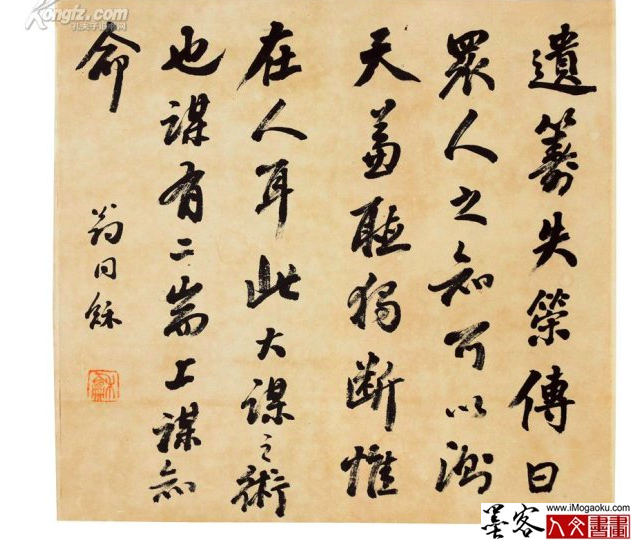 遺籌失策傳曰
眾人之知可以測
天兼聽獨斷惟
在人耳此大謀之術
也謀有二端上謀知
命
翁同龢
Kongfz.com
孔夫子旧书网
墨客
www.iMogaoku.com
人文書畫